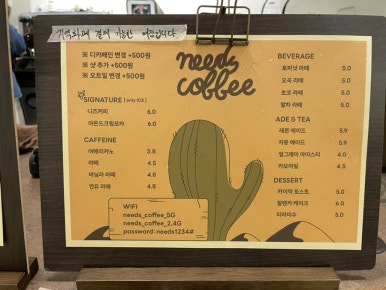 지역화폐 결제 가능한 매장입니다.
※ 디카페인 변경 +500원
※ 샷 추가 +500원
※ 오트밀 변경 +500원
needs
coffee
SIGNATURE [only ICE]
니즈커피 6.0
아몬드크림모카 6.0
CAFFEINE
아메리카노 3.8
라떼 4.5
바닐라 라떼 4.8
연유 라떼 4.8
WIFI
needs_coffee_5G
needs_coffee_2.4G
password: needs1234#
BEVERAGE
토피넛 라떼 5.0
오곡 라떼 5.0
초코 라떼 5.0
말차 라떼 5.0
ADE & TEA
레몬 에이드 5.9
자몽 에이드 5.9
얼그레이 아이스티 4.0
캐모마일 4.5
DESSERT
카이막 토스트 5.0
바스크 케이크 6.0
티라미수 5.0